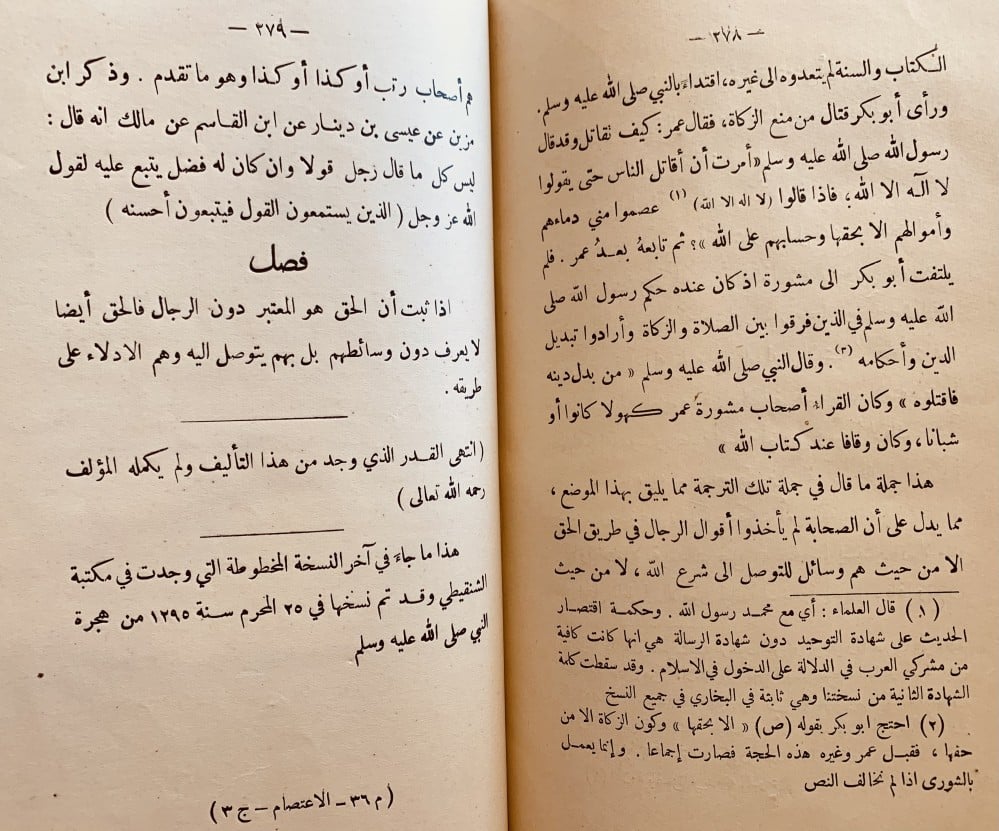 — ٢٧٨ —
الكتاب والسنة لم يتعدوه الى غيره، اقتداءً بالنبي صلى الله عليه وسلم.
ورأى أبو بكر قتال من منع الزكاة، فقال عمر: كيف تقاتل وقد قال
رسول الله صلى الله عليه وسلم «أمرت أن أقاتل الناس حتى يقولوا
لا آله الا الله، فاذا قالوا (لا اله الا الله) (١) عصموا مني دماءهم
وأموالهم الا بحقها وحسابهم على الله »؟ ثم تابعهُ بعـدُ عمر . فلم
يلتفت أبو بكر الى مشورة اذ كان عنده حكم رسول الله صلى
الله عليه وسلم في الذين فرقوا بين الصلاة والزكاة وأرادوا تبديل
الدين وأحكامه (٣). وقال النبي صلى الله عليه وسلم « من بدل دينه
فاقتلوه » وكان القراء أصحاب مشورة عمر كهولا كانوا أو
شبانا ، وكان وقافا عند كتاب الله »
هذا جملة ما قال في جملة تلك الترجمة مما يليق بهذا الموضع ،
مما يدل على أن الصحابة لم يأخذوا أقوال الرجال في طريق الحق
الا من حيث هم وسائل للتوصل الى شرع الله ، لا من حيث
(١) قال العلماء : أي مع محمد رسول الله . وحكمة اقتصار
الحديث على شهادة التوحيد دون شهادة الرسالة هي انها كانت كافية
من مشركي العرب في الدلالة على الدخول في الاسلام . وقد سقطت كلمة
الشهادة الثانية من نسختنا وهي ثابتة في البخاري في جميع النسخ
(٢) احتج ابو بكر بقوله (ص) « الا بحقها » وكون الزكاة الا من
حفها ، فقبل عمر وغيره هذه الحجة فصارت إجماعا . وإنما يعمل
بالشورى اذا لم تخالف النص
— ٢٧٩ —
هم أصحاب رتب أو كذا أو كذا وهو ما تقدم . وذكر ابن
مزين عن عيسى بن دينار عن ابن القاسم عن مالك انه قال :
ليس كل ما قال رجل قولا وان كان له فضل يتبع عليه لقول
الله عز وجل ( الذين يستمعون القول فيتبعون أحسنه )
فصل
اذا ثبت أن الحق هو المعتبر دون الرجال فالحق أيضا
لا يعرف دون وسائطهم بل بهم يتوصل اليه وهم الادلاء على
طريقه .
( انتهى القدر الذي وجد من هذا التأليف ولم يكمله المؤلف
رحمه الله تعالى )
هذا ما جاء في آخر النسخة المخطوطة التي وجدت في مكتبة
الشنقيطي وقد تم نسخها في ٢٥ المحرم سنة ١٢٩٥ من هجرة
النبي صلى الله عليه وسلم
( م ٣٦ — الاعتصام — ج ٣ )